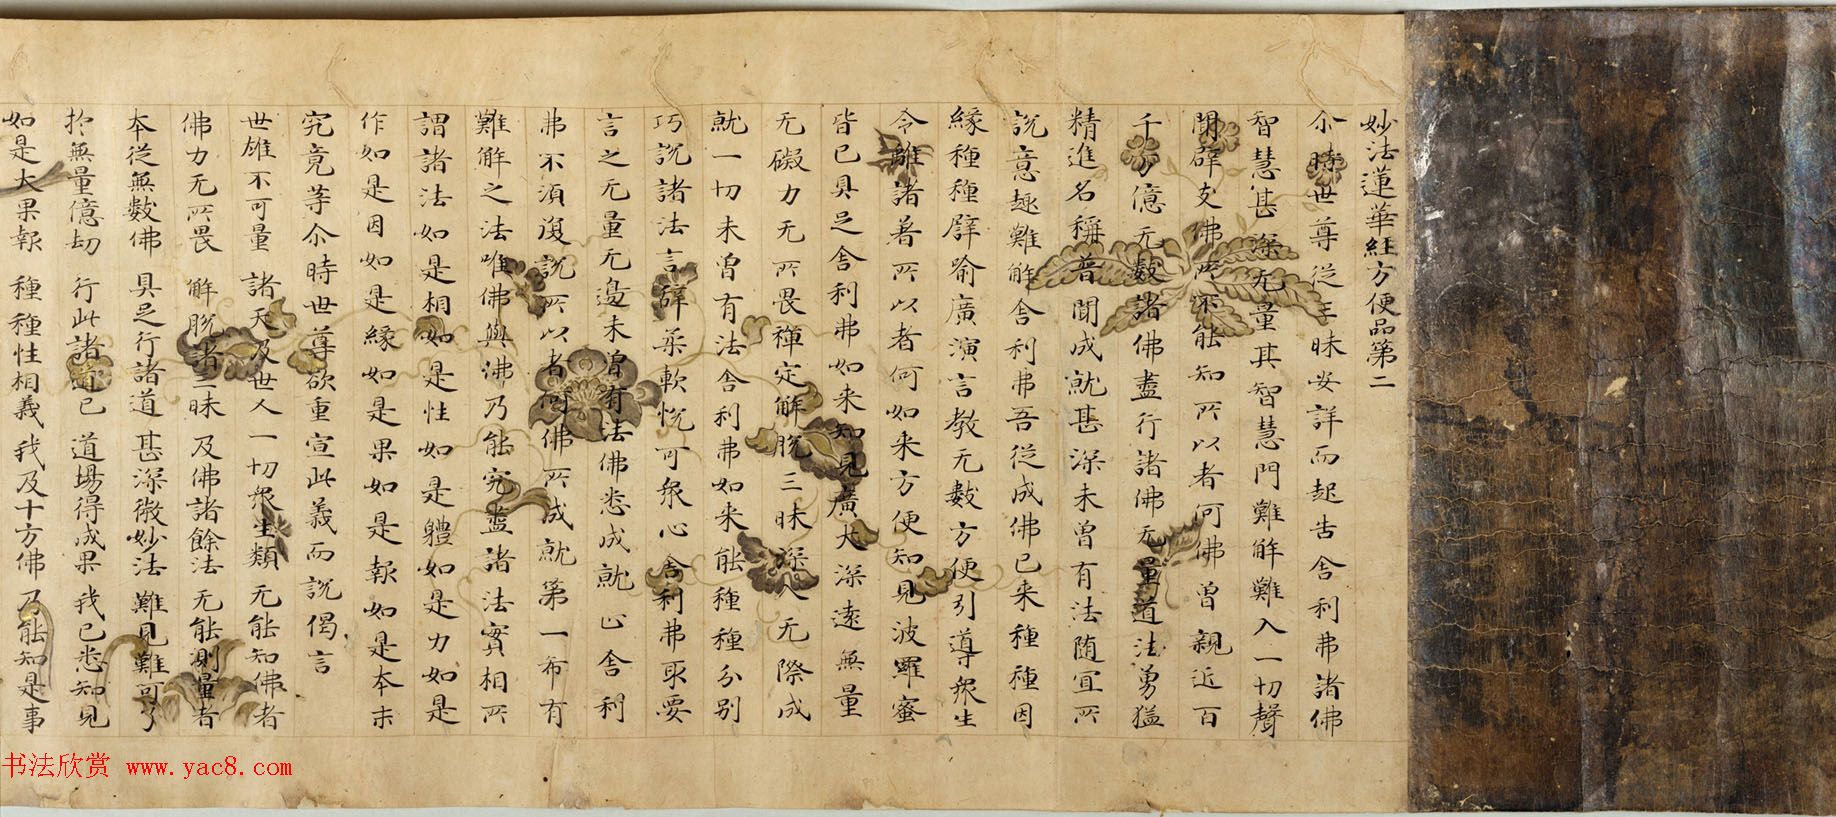 妙法蓮華經方便品第二
尒時世尊従三昧安詳而起告舎利弗諸佛
智慧甚深无量其智慧門難解難入一切聲
聞辟支佛所不能知所以者何佛曾親近百
千万億无數諸佛盡行諸佛无量道法勇猛
精進名稱普聞成就甚深未曾有法随宜所
說意趣難解舎利弗吾従成佛已来種種因
緣種種辟喻廣演言教无數方便引導衆生
令離諸著所以者何如来方便知見波羅蜜
皆已具足舎利弗如来知見廣大深遠無量
无礙力无所畏禪定解脫三昧深入无際成
就一切未曾有法舎利弗如来能種種分別
巧說諸法言辭柔軟悅可衆心舎利弗取要
言之无量无邊未曾有法佛悉成就止舎利
弗不湏復說所以者何佛所成就第一希有
難解之法唯佛與佛乃能究盡諸法實相所
謂諸法如是相如是性如是體如是力如是
作如是因如是緣如是果如是報如是本末
究竟等尒時世尊欲重宣此義而說偈言
世雄不可量 諸天及世人 一切衆生類 无能知佛者
佛力无所畏 解脫諸三昧 及佛諸餘法 无能測量者
本従無數佛 具足行諸道 甚深微妙法 難見難可了
扵無量億劫 行此諸道已 道場得成果 我已悉知見
如是大果報 種種性相義 我及十方佛 乃能知是事
书法欣赏 www.yac8.com